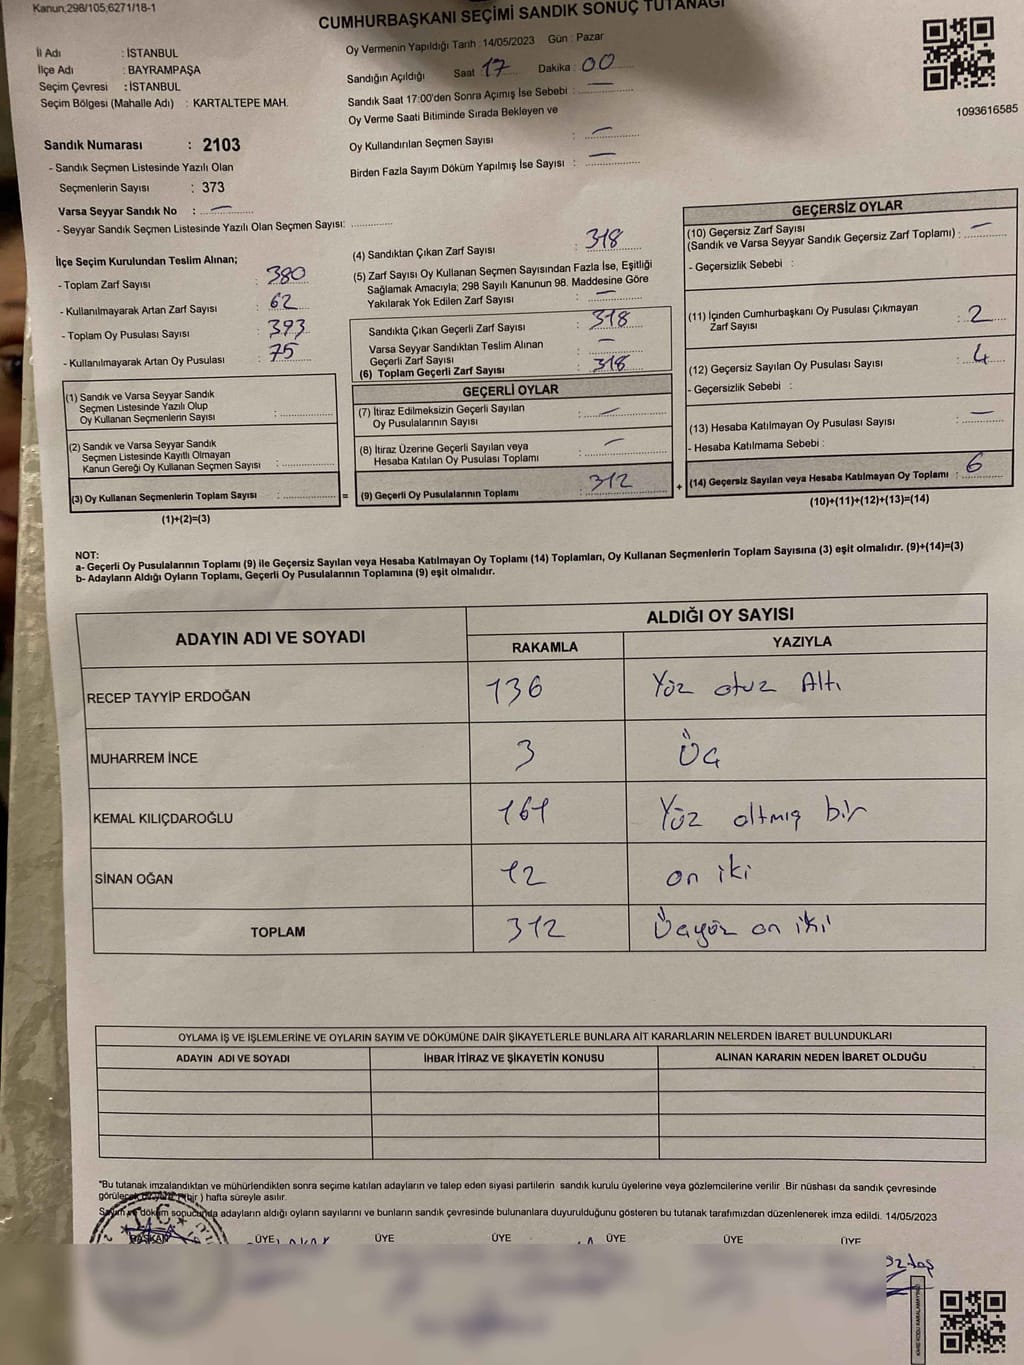 Kanun,298/105,6271/18-1
CUMHURBAŞKANI SEÇİMİ SANDIK SONUÇ TUTANAĞI
İl Adı : İSTANBUL
İlçe Adı : BAYRAMPAŞA
Seçim Çevresi : İSTANBUL
Seçim Bölgesi (Mahalle Adı) : KARTALTEPE MAH.
Oy Vermenin Yapıldığı Tarih : 14/05/2023 Gün : Pazar
Sandığın Açıldığı Saat 17 Dakika : 00
Sandık Saat 17:00'den Sonra Açımış İse Sebebi : —
Oy Verme Saati Bitiminde Sırada Bekleyen ve
Oy Kullandırılan Seçmen Sayısı : —
Birden Fazla Sayım Döküm Yapılmış İse Sayısı : —
1093616585
Sandık Numarası : 2103
- Sandık Seçmen Listesinde Yazılı Olan
Seçmenlerin Sayısı : 373
Varsa Seyyar Sandık No : —
- Seyyar Sandık Seçmen Listesinde Yazılı Olan Seçmen Sayısı:
İlçe Seçim Kurulundan Teslim Alınan;
- Toplam Zarf Sayısı : 380
- Kullanılmayarak Artan Zarf Sayısı : 62
- Toplam Oy Pusulası Sayısı : 393
- Kullanılmayarak Artan Oy Pusulası : 75
(1) Sandık ve Varsa Seyyar Sandık
Seçmen Listesinde Yazılı Olup
Oy Kullanan Seçmenlerin Sayısı :
(2) Sandık ve Varsa Seyyar Sandık
Seçmen Listesinde Kayıtlı Olmayan
Kanun Gereği Oy Kullanan Seçmen Sayısı :
(3) Oy Kullanan Seçmenlerin Toplam Sayısı : =
(1)+(2)=(3)
(4) Sandıktan Çıkan Zarf Sayısı : 318
(5) Zarf Sayısı Oy Kullanan Seçmen Sayısından Fazla İse, Eşitliği
Sağlamak Amacıyla; 298 Sayılı Kanunun 98. Maddesine Göre
Yakılarak Yok Edilen Zarf Sayısı : —
Sandıkta Çıkan Geçerli Zarf Sayısı : 318
Varsa Seyyar Sandıktan Teslim Alınan
Geçerli Zarf Sayısı : —
(6) Toplam Geçerli Zarf Sayısı : 318
GEÇERLİ OYLAR
(7) İtiraz Edilmeksizin Geçerli Sayılan
Oy Pusulasının Sayısı : —
(8) İtiraz Üzerine Geçerli Sayılan veya
Hesaba Katılan Oy Pusulası Toplamı : —
(9) Geçerli Oy Pusulalarının Toplamı : 312 +
GEÇERSİZ OYLAR
(10) Geçersiz Zarf Sayısı
(Sandık ve Varsa Seyyar Sandık Geçersiz Zarf Toplamı) : —
- Geçersizlik Sebebi :
(11) İçinden Cumhurbaşkanı Oy Pusulası Çıkmayan
Zarf Sayısı : 2
(12) Geçersiz Sayılan Oy Pusulası Sayısı : 4
- Geçersizlik Sebebi :
(13) Hesaba Katılmayan Oy Pusulası Sayısı : —
- Hesaba Katılmama Sebebi :
(14) Geçersiz Sayılan veya Hesaba Katılmayan Oy Toplamı : 6
(10)+(11)+(12)+(13)=(14)
NOT:
a- Geçerli Oy Pusulalarının Toplamı (9) ile Geçersiz Sayılan veya Hesaba Katılmayan Oy Toplamı (14) Toplamları, Oy Kullanan Seçmenlerin Toplam Sayısına (3) eşit olmalıdır. (9)+(14)=(3)
b- Adayların Aldığı Oyların Toplamı, Geçerli Oy Pusulalarının Toplamına (9) eşit olmalıdır.
ADAYIN ADI VE SOYADI ALDIĞI OY SAYISI
RAKAMLA YAZIYLA
RECEP TAYYİP ERDOĞAN 136 Yüz otuz Altı
MUHARREM İNCE 3 Üç
KEMAL KILIÇDAROĞLU 161 Yüz altmış bir
SİNAN OĞAN 12 on iki
TOPLAM 312 Üçyüz on iki
OYLAMA İŞ VE İŞLEMLERİNE VE OYLARIN SAYIM VE DÖKÜMÜNE DAİR ŞİKAYETLERLE BUNLARA AİT KARARLARIN NELERDEN İBARET BULUNDUKLARI
ADAYIN ADI VE SOYADI İHBAR İTİRAZ VE ŞİKAYETİN KONUSU ALINAN KARARIN NEDEN İBARET OLDUĞU
*Bu tutanak imzalandıktan ve mühürlendikten sonra seçime katılan adayların ve talep eden siyasi partilerin sandık kurulu üyelerine veya gözlemcilerine verilir .Bir nüshası da sandık çevresinde
görülecek (bir ) hafta süreyle asılır.
Sayım ve döküm sonucunda adayların aldığı oyların sayılarını ve bunların sandık çevresinde bulunanlara duyurulduğunu gösteren bu tutanak tarafımızdan düzenlenerek imza edildi. 14/05/2023
T.C.
BAŞKAN ÜYE ÜYE ÜYE ÜYE ÜYE ÜYE